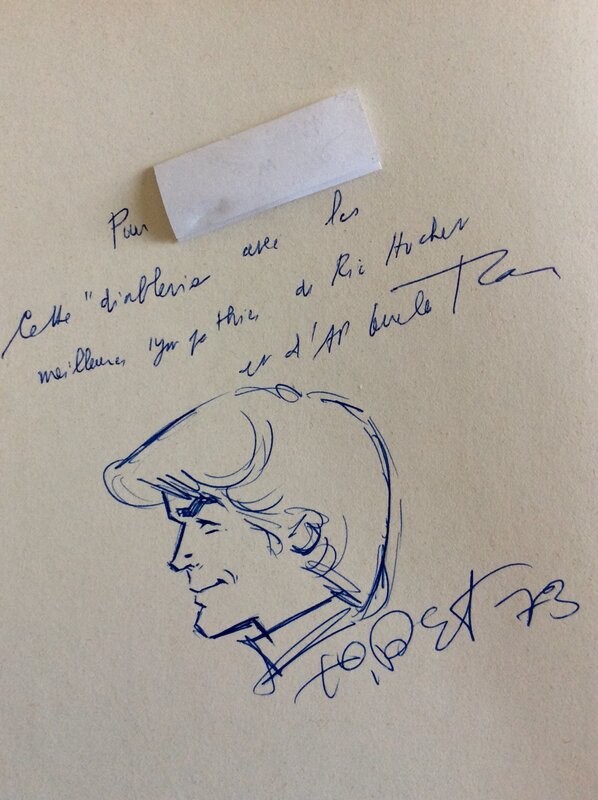 Pour
Cette "diablerie avec les
meilleures sympathies de Ric Hochet
et d'AP Duchateau
TIBET 73